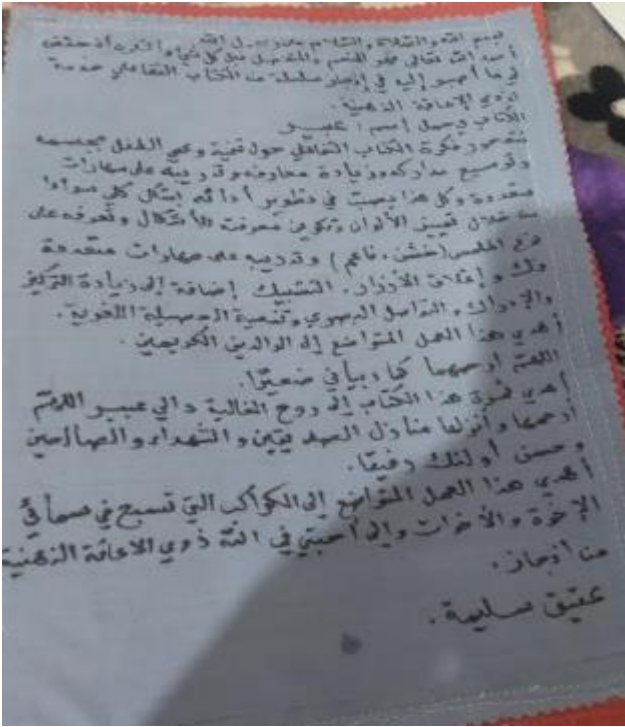 بسم الله والصلاة والسلام على رسول الله
أحمد الله تعالى فهو المنعم والمتفضل قبل كل شيء وأكون قد حققت
في ما أصبو إليه في إنجاز سلسلة من الكتاب التفاعلي خدمة
لذوي الإعاقة الذهنية.
الكتاب يحمل إسم: عبير
تتمحور فكرة الكتاب التفاعلي حول تنمية وعي الطفل بجسمه
وتوسيع مداركه وزيادة معارفه وتدريبه على مهارات
متعددة وكل هذا يصب في تطوير أدائه بشكل كلي سواءا
من خلال تمييز الألوان وتكوين معرفة الأشكال وتعرفه على
نوع الملمس (خشن، ناعم) وتدريبه على مهارات متعددة
وفك وإغلاق الأزرار، التشبيك إضافة إلى زيادة التركيز
والإدراك والتواصل البصري وتنمية الحصيلة اللغوية.
أهدي هذا العمل المتواضع إلى الوالدين الكريمين.
اللهم ارحمهما كما ربياني صغيرا.
أهدي فكرة هذا الكتاب إلى روح الغالية دالي عبير اللهم
أرحمها وأنزلها منازل الصديقين والشهداء والصالحين
وحسن أولئك رفيقا.
أهدي هذا العمل المتواضع إلى الكواكب التي تسبح في سمائي
الإخوة والأخوات وإلى أحبتي في الله ذوي الاعاقة الذهنية
من أنجاز.
عتيق سليمة.